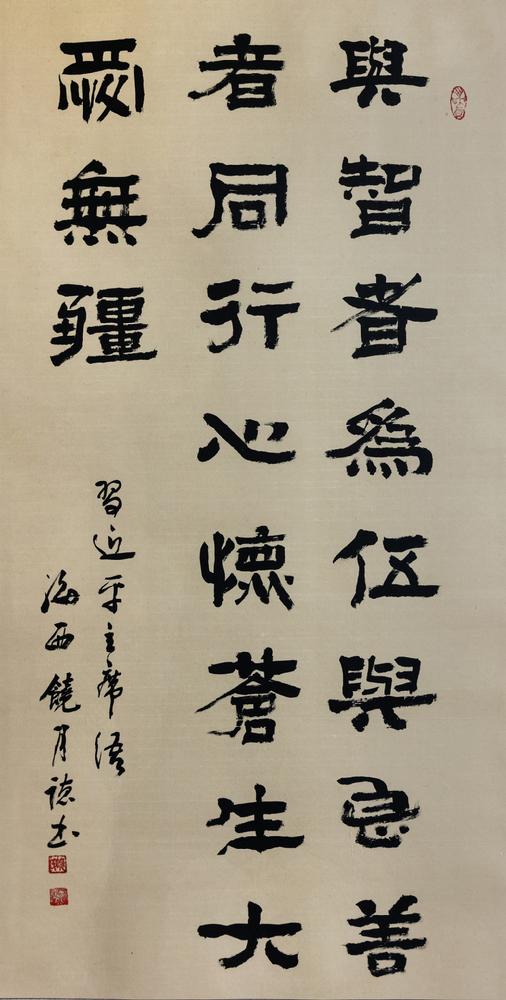 與智者爲伍與良善
者同行心懷蒼生大
愛無疆
習近平主席語
海西饒月德书